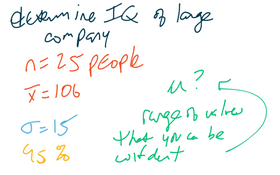 determine IQ of large
company
n = 25 people
x̄ = 106
σ = 15
95%
μ?
range of values
that you can be
confident